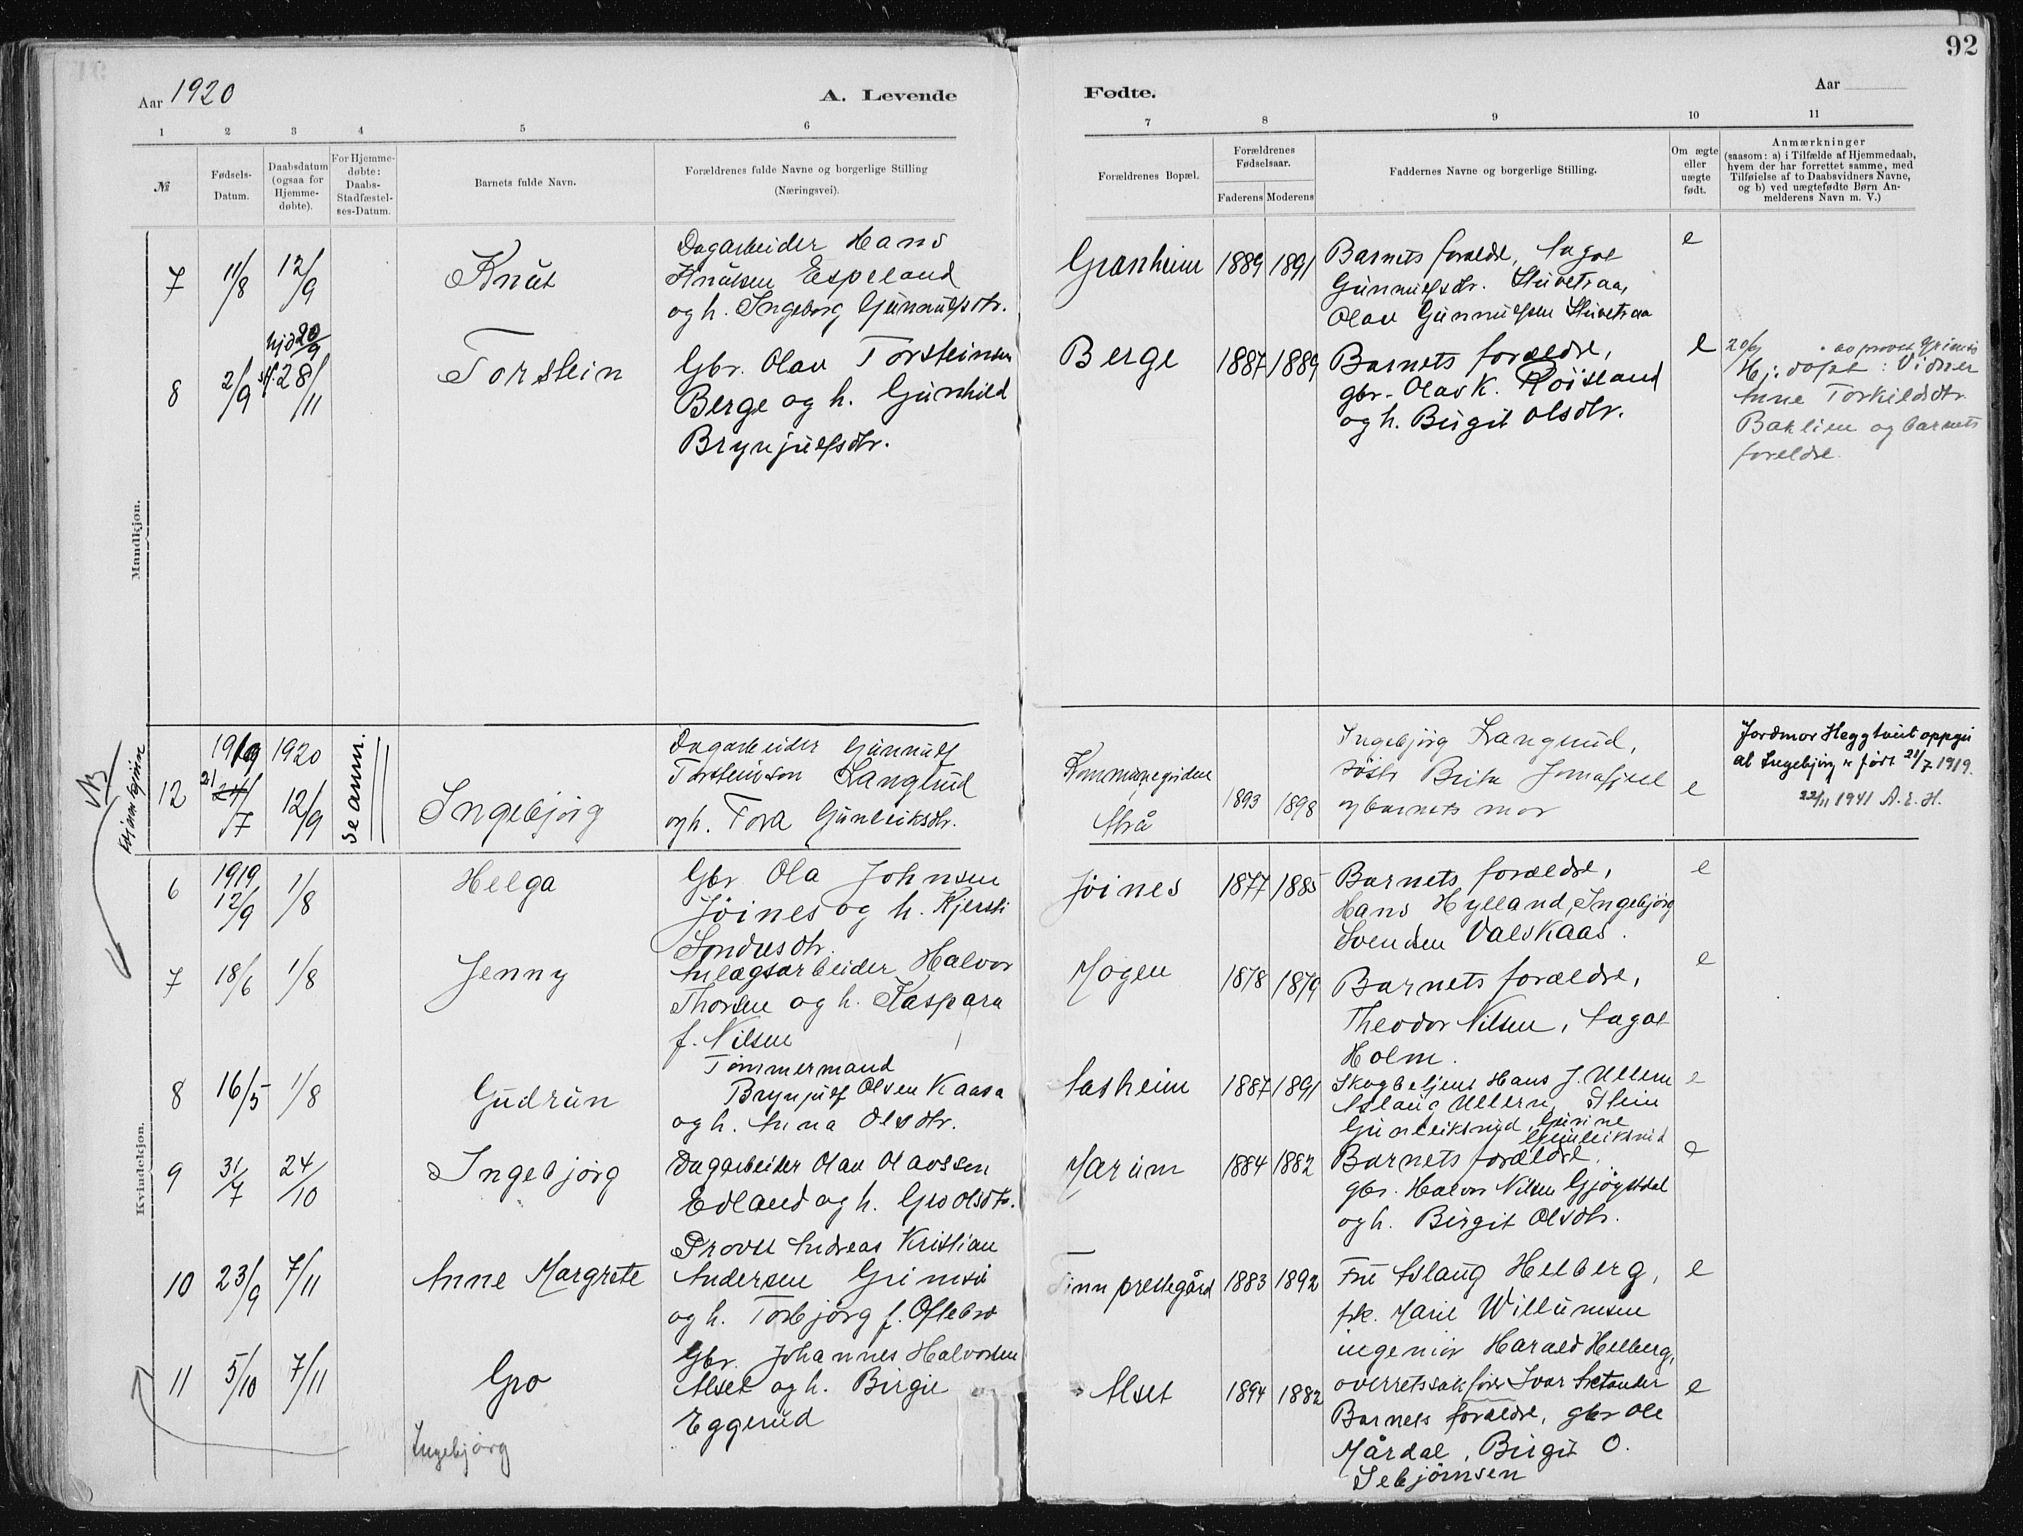 92
Aar 1920
A. Levende Fødte.
Aar
1 2 3 4 5 6 7 8 9 10 11
№
Fødsels-
Datum.
Daabsdatum
(ogsaa for
Hjemme-
døbte).
For Hjemme-
døbte:
Daabs-
Stadfæstel-
ses-Datum.
Barnets fulde Navn.
Forældrenes fulde Navne og borgerlige Stilling
(Næringsvei).
Forældrenes Bopæl.
Forældrenes
Fødselsaar.
Faderens Moderens
Faddernes Navne og borgerlige Stilling.
Om ægte
eller
uægte
født.
Anmærkninger
(saasom: a) i Tilfælde af Hjemmedaab,
hvem der har forrettet samme, med
Tilføielse af to Daabsvidners Navne,
og b) ved uægtefødte Børn An-
melderens Navn m. V.)
Mandkjøn.
7 11/8 12/9 Knut
Dagarbeider Hans
Knutsen Espeland
og h. Ingeborg Gunnulfsdtr.
Granheim 1889 1891
Barnets foreldre, Aagot
Gunnulfsdtr. Stivetraa,
Olav Gunnulfsen Stivetraa
e
8 2/9
hjd 20/9
stf. 28/11
Torstein
Gbr. Olav Torsteinsen
Berge og h. Gunhild
Brynjulfsdtr.
Berge 1887 1889
Barnets forældre,
gbr. Olav K. Røisland
og h. Birgit Olsdtr.
e
20/9 av provst Grimsø
Hj. døpt: Vidner
Anne Torkildsdtr.
Baklien og barnets
foreldre.
Kvindekjøn
12
1919
21/7
1920
12/9
se anm.
Ingebjørg
Dagarbeider Gunnulf
Torsteinson Langlud
og h. Tora Gunleiksdtr.
Atrå
1893 1898
Ingebjørg Langrud,
søstr Brita Jomafjsel
og barnets mor
e
Jordmor Heggtveit oppgir
at Ingebjørg er født 21/7 1919.
22/11 1941 A. E. H.
Kvindekjøn.
6 1919
12/9 1/8 Helga
Gbr Ola Johnsen
Jøines og h. Kjersti
Sondresdtr.
Jøines 1877 1885
Barnets forældre,
Hans Hylland, Ingebjørg
Svendsen Valskaas.
e
7 18/6 1/8 Jenny
Anlægsarbeider Halvor
Thorsen og h. Kaspara
f. Nilsen
Mogen 1878 1879
Barnets forældre,
Theodor Nilsen, Aagot
Holm.
e
8 16/5 1/8 Gudrun
Tømmermand
Brynjulf Olsen Kaasa
og h. Anna Olsdtr.
Aasheim 1887 1891
Skogbetjent Hans J. Ullern
Aslaug Ullern, Stein
Gunleiksrud, Gunine
Gunleiksrud
e
9 31/7 24/10 Ingebjørg
Dagarbeider Olav Olavssen
Edland og h. Gro Olsdtr.
Marum 1884 1882
Barnets forældre,
gbr. Halvor Nilsen Gjøystdal
og h. Birgit Olsdtr.
e
10 23/9 7/11 Anne Margrete
Provst Andreas Kristian
Andersen Grimsø
og h. Torbjørg f. Oftebro
Tinn prestegård 1883 1892
Fru Aslaug Helberg,
frk. Marie Willumsen
ingeniør Harald Helberg,
overretssakfører Ivar Aretander
e
11 5/10 7/11 Gro
Gbr. Johannes Halvorsen
Alset og h. Birgit
Eggerud
Alset 1894 1882
Barnets forældre, gbr Ole
Mårdal, Birgit O.
Sebjørnsen
e
Ingebjørg